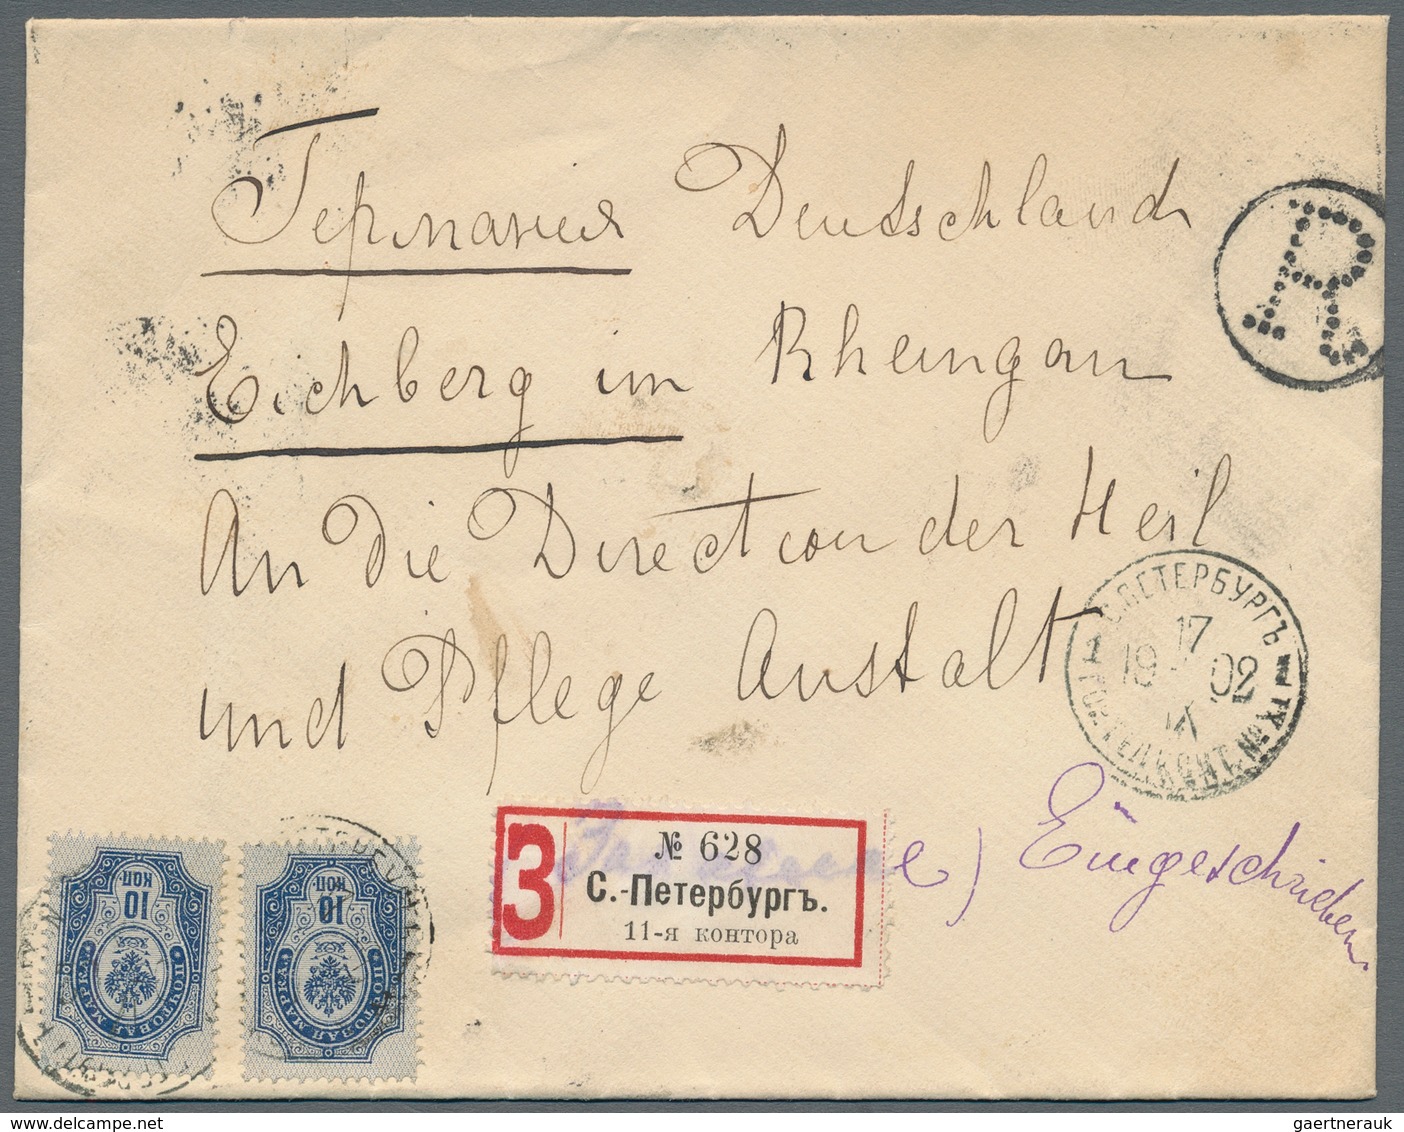 Германия Deutschland
Eichberg im Rheingau
An die Direction der Heil
und Pflege Anstalt
R
С.ПЕТЕРБУРГЪ
17
19 02
IX
З
№ 628
С.-Петербургъ.
11-я контора
Eingeschrieben
10
КОП
ПОЧТОВАЯ МАРКА
10
КОП
ПОЧТОВАЯ МАРКА
gaertnerauk